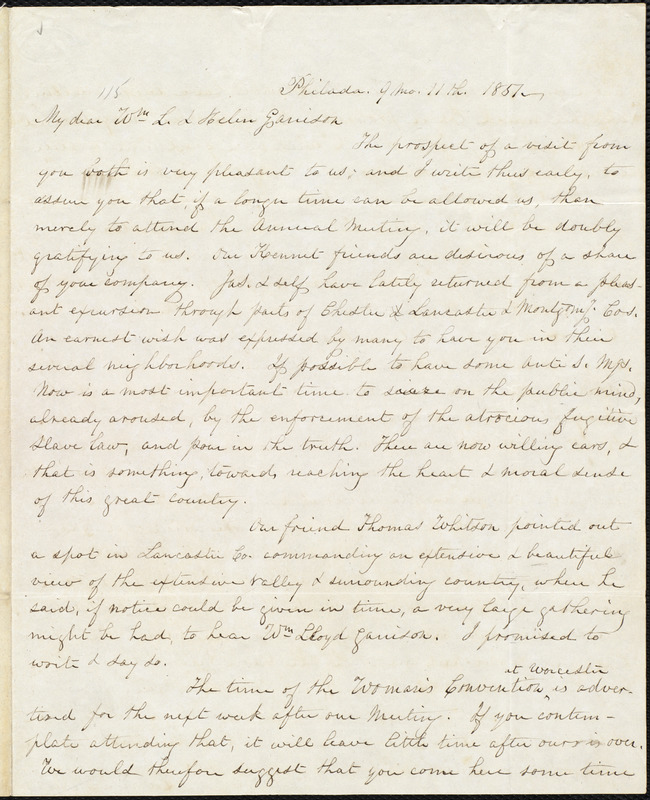 115
Philada. 9 mo. 11th. 1851.
My dear Wm. L. & Helen Garrison
The prospect of a visit from
you both is very pleasant to us; and I write thus early, to
assure you that, if a longer time can be allowed us, than
merely to attend the Annual Meeting, it will be doubly
gratifying to us. Our Kennet friends are desirous of a share
of your company. Jas. & self have lately returned from a pleas-
ant excursion through parts of Chester & Lancaster & Montgomy. Cos.
An earnest wish was expressed by many to have you in their
several neighborhoods. If possible to have some anti S. Mgs.
Now is a most important time to seize on the public mind,
already aroused, by the enforcement of the atrocious fugitive
slave law, and pour in the truth. There are now willing ears, &
that is something, towards reaching the heart & moral sense
of this great country.
Our friend Thomas Whitson pointed out
a spot in Lancaster Co. commanding an extensive & beautiful
view of the extensive valley & surrounding country, where he
said, if notice could be given in time, a very large gathering
might be had, to hear Wm. Lloyd Garrison. I promised to
write & say so.
at Worcester
The time of the Woman's Convention ^ is adver-
tised for the next week after our Meeting. If you contem-
plate attending that, it will leave little time after ours is over.
We would therefore suggest that you come here some time